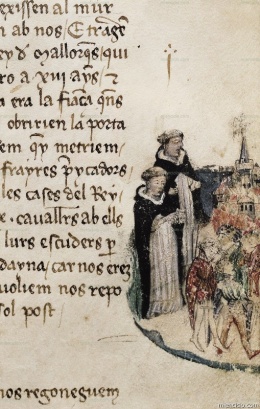 exissen al mur
n ab nos. E trague
ey d mallorqs, qui
ro a xiii ays, ⁊
a era la fiaça q̄ns
obririen la porta
em q̄y metriem
frayres p̄ycadors,
les cases del Rey
e. cauallrs ab ells
lurs escuders p̄
dayna, car nos erez
uoliem nos repo
sol post.
nos regoneguem